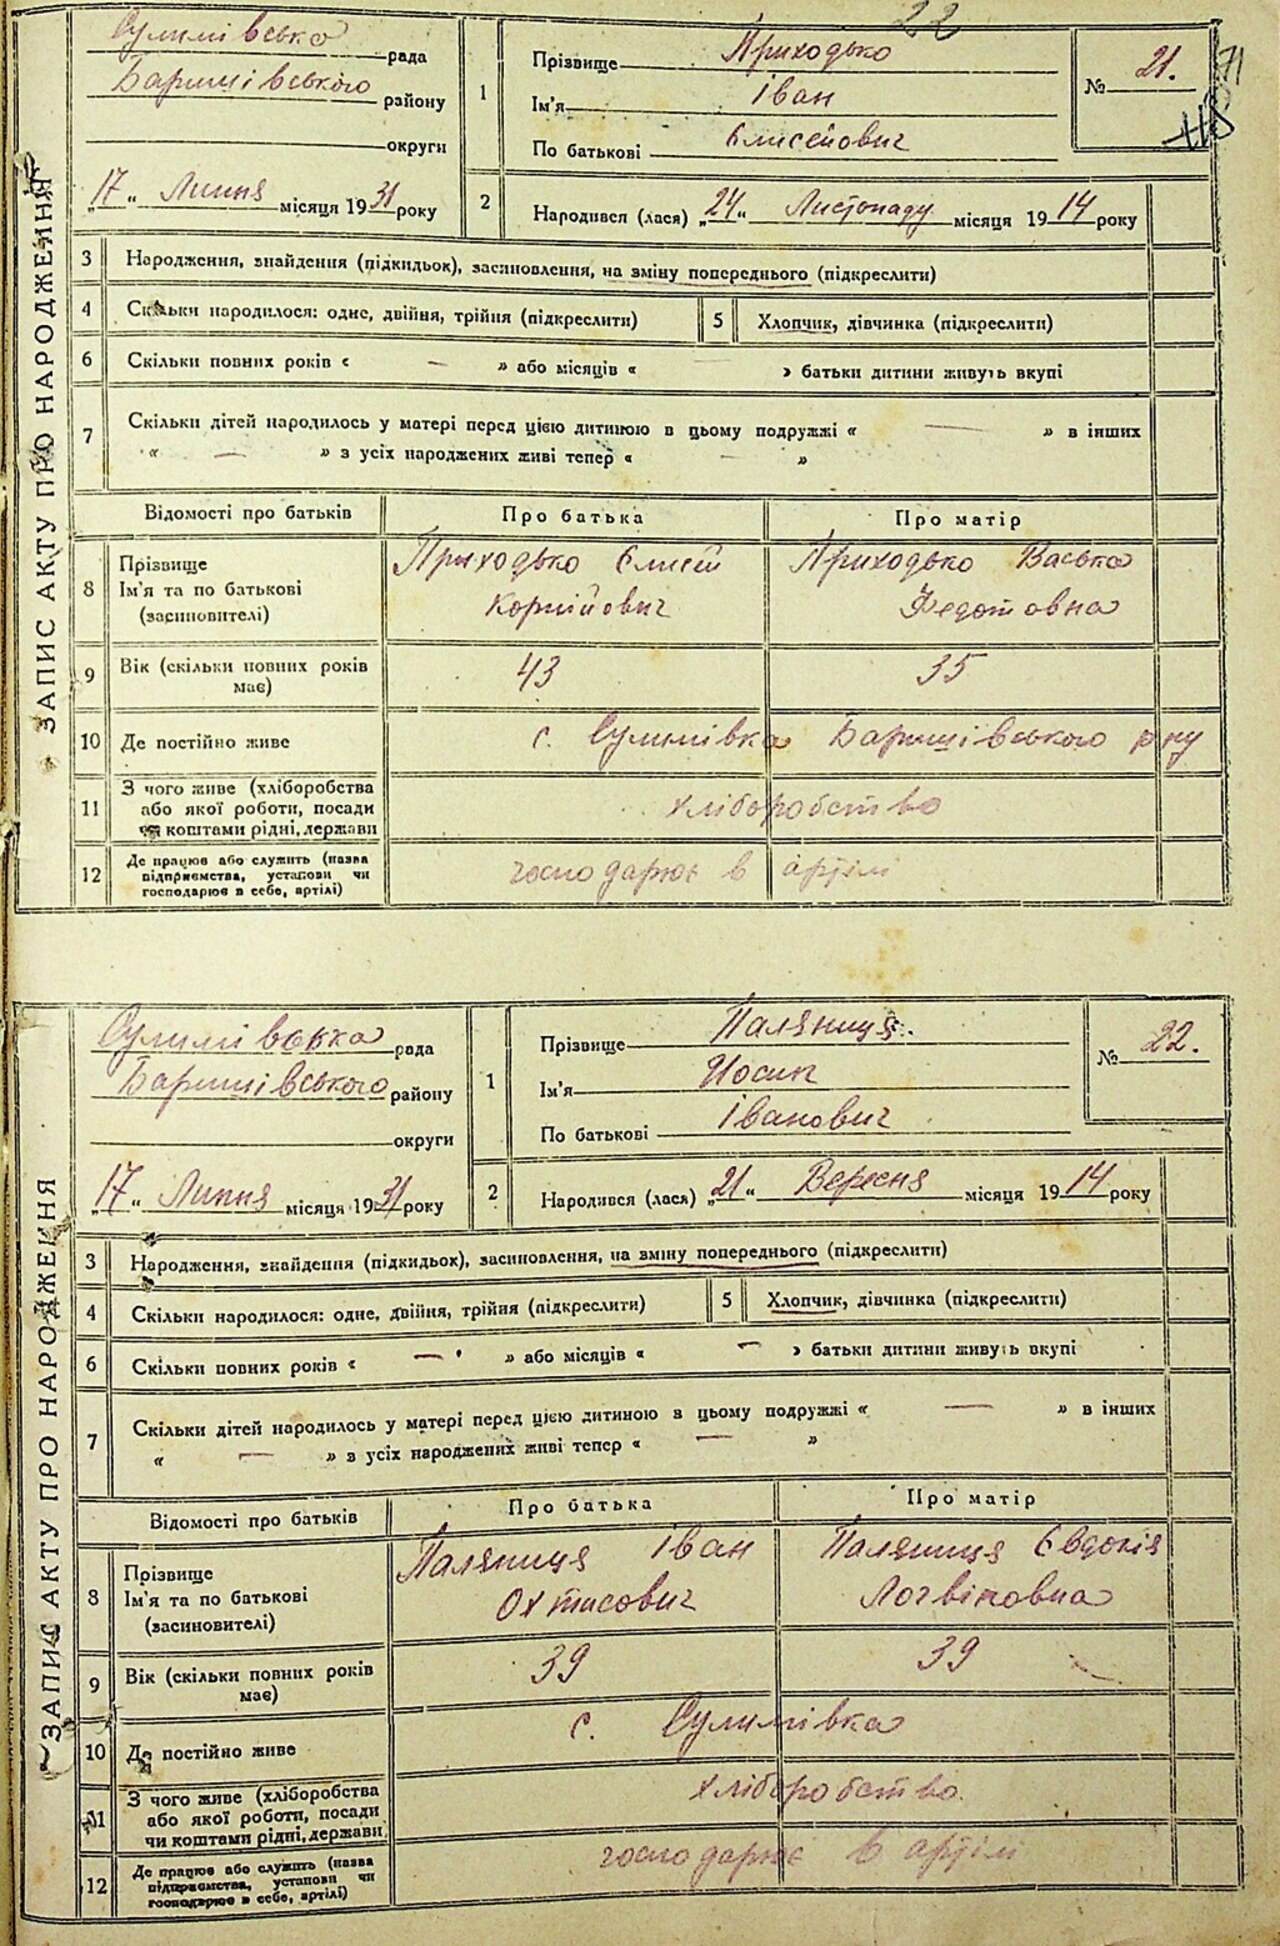 22
Сулимівська рада
Баришівського району
округи
„17“ Липня місяця 1931 року
1
Прізвище Приходько
Ім'я Іван
По батькові Єлисейович
№ 21.
71
2
Народився (лася) „24“ Листопаду місяця 1914 року
ЗАПИС АКТУ ПРО НАРОДЖЕННЯ
3 Народження, знайдення (підкидьок), засиновлення, на зміну попереднього (підкреслити)
4 Скільки народилося: одне, двійня, трійня (підкреслити) 5 Хлопчик, дівчинка (підкреслити)
6 Скільки повних років « — » або місяців « — » батьки дитини живуть вкупі
7 Скільки дітей народилось у матері перед цією дитиною в цьому подружжі « — » в інших
« — » з усіх народжених живі тепер « — »
Відомості про батьків Про батька Про матір
8 Прізвище Ім'я та по батькові (засиновителі)
Приходько Єлисей Корнійович
Приходько Васька Федотовна
9 Вік (скільки повних років має) 43 35
10 Де постійно живе с. Сулимівка Баришівського р-ну
11 З чого живе (хліборобства або якої роботи, посади чи коштами рідні, держави хліборобство
12 Де працює або служить (назва підприємства, установи чи господарює в себе, артілі) господарює в артілі
Сулимівська рада
Баришівського району
округи
„17“ Липня місяця 1931 року
1
Прізвище Паляниця.
Ім'я Йосип
По батькові Іванович
№ 22.
2
Народився (лася) „21“ Вересня місяця 1914 року
ЗАПИС АКТУ ПРО НАРОДЖЕННЯ
3 Народження, знайдення (підкидьок), засиновлення, на зміну попереднього (підкреслити)
4 Скільки народилося: одне, двійня, трійня (підкреслити) 5 Хлопчик, дівчинка (підкреслити)
6 Скільки повних років « — » або місяців « — » батьки дитини живуть вкупі
7 Скільки дітей народилось у матері перед цією дитиною в цьому подружжі « — » в інших
« — » з усіх народжених живі тепер « — »
Відомості про батьків Про батька Про матір
8 Прізвище Ім'я та по батькові (засиновителі)
Паляниця Іван Охтисович
Паляниця Євдокія Логвіновна
9 Вік (скільки повних років має) 39 39
10 Де постійно живе с. Сулимівка
11 З чого живе (хліборобства або якої роботи, посади чи коштами рідні, держави хліборобство
12 Де працює або служить (назва підприємства, установи чи господарює в себе, артілі) господарює в артілі